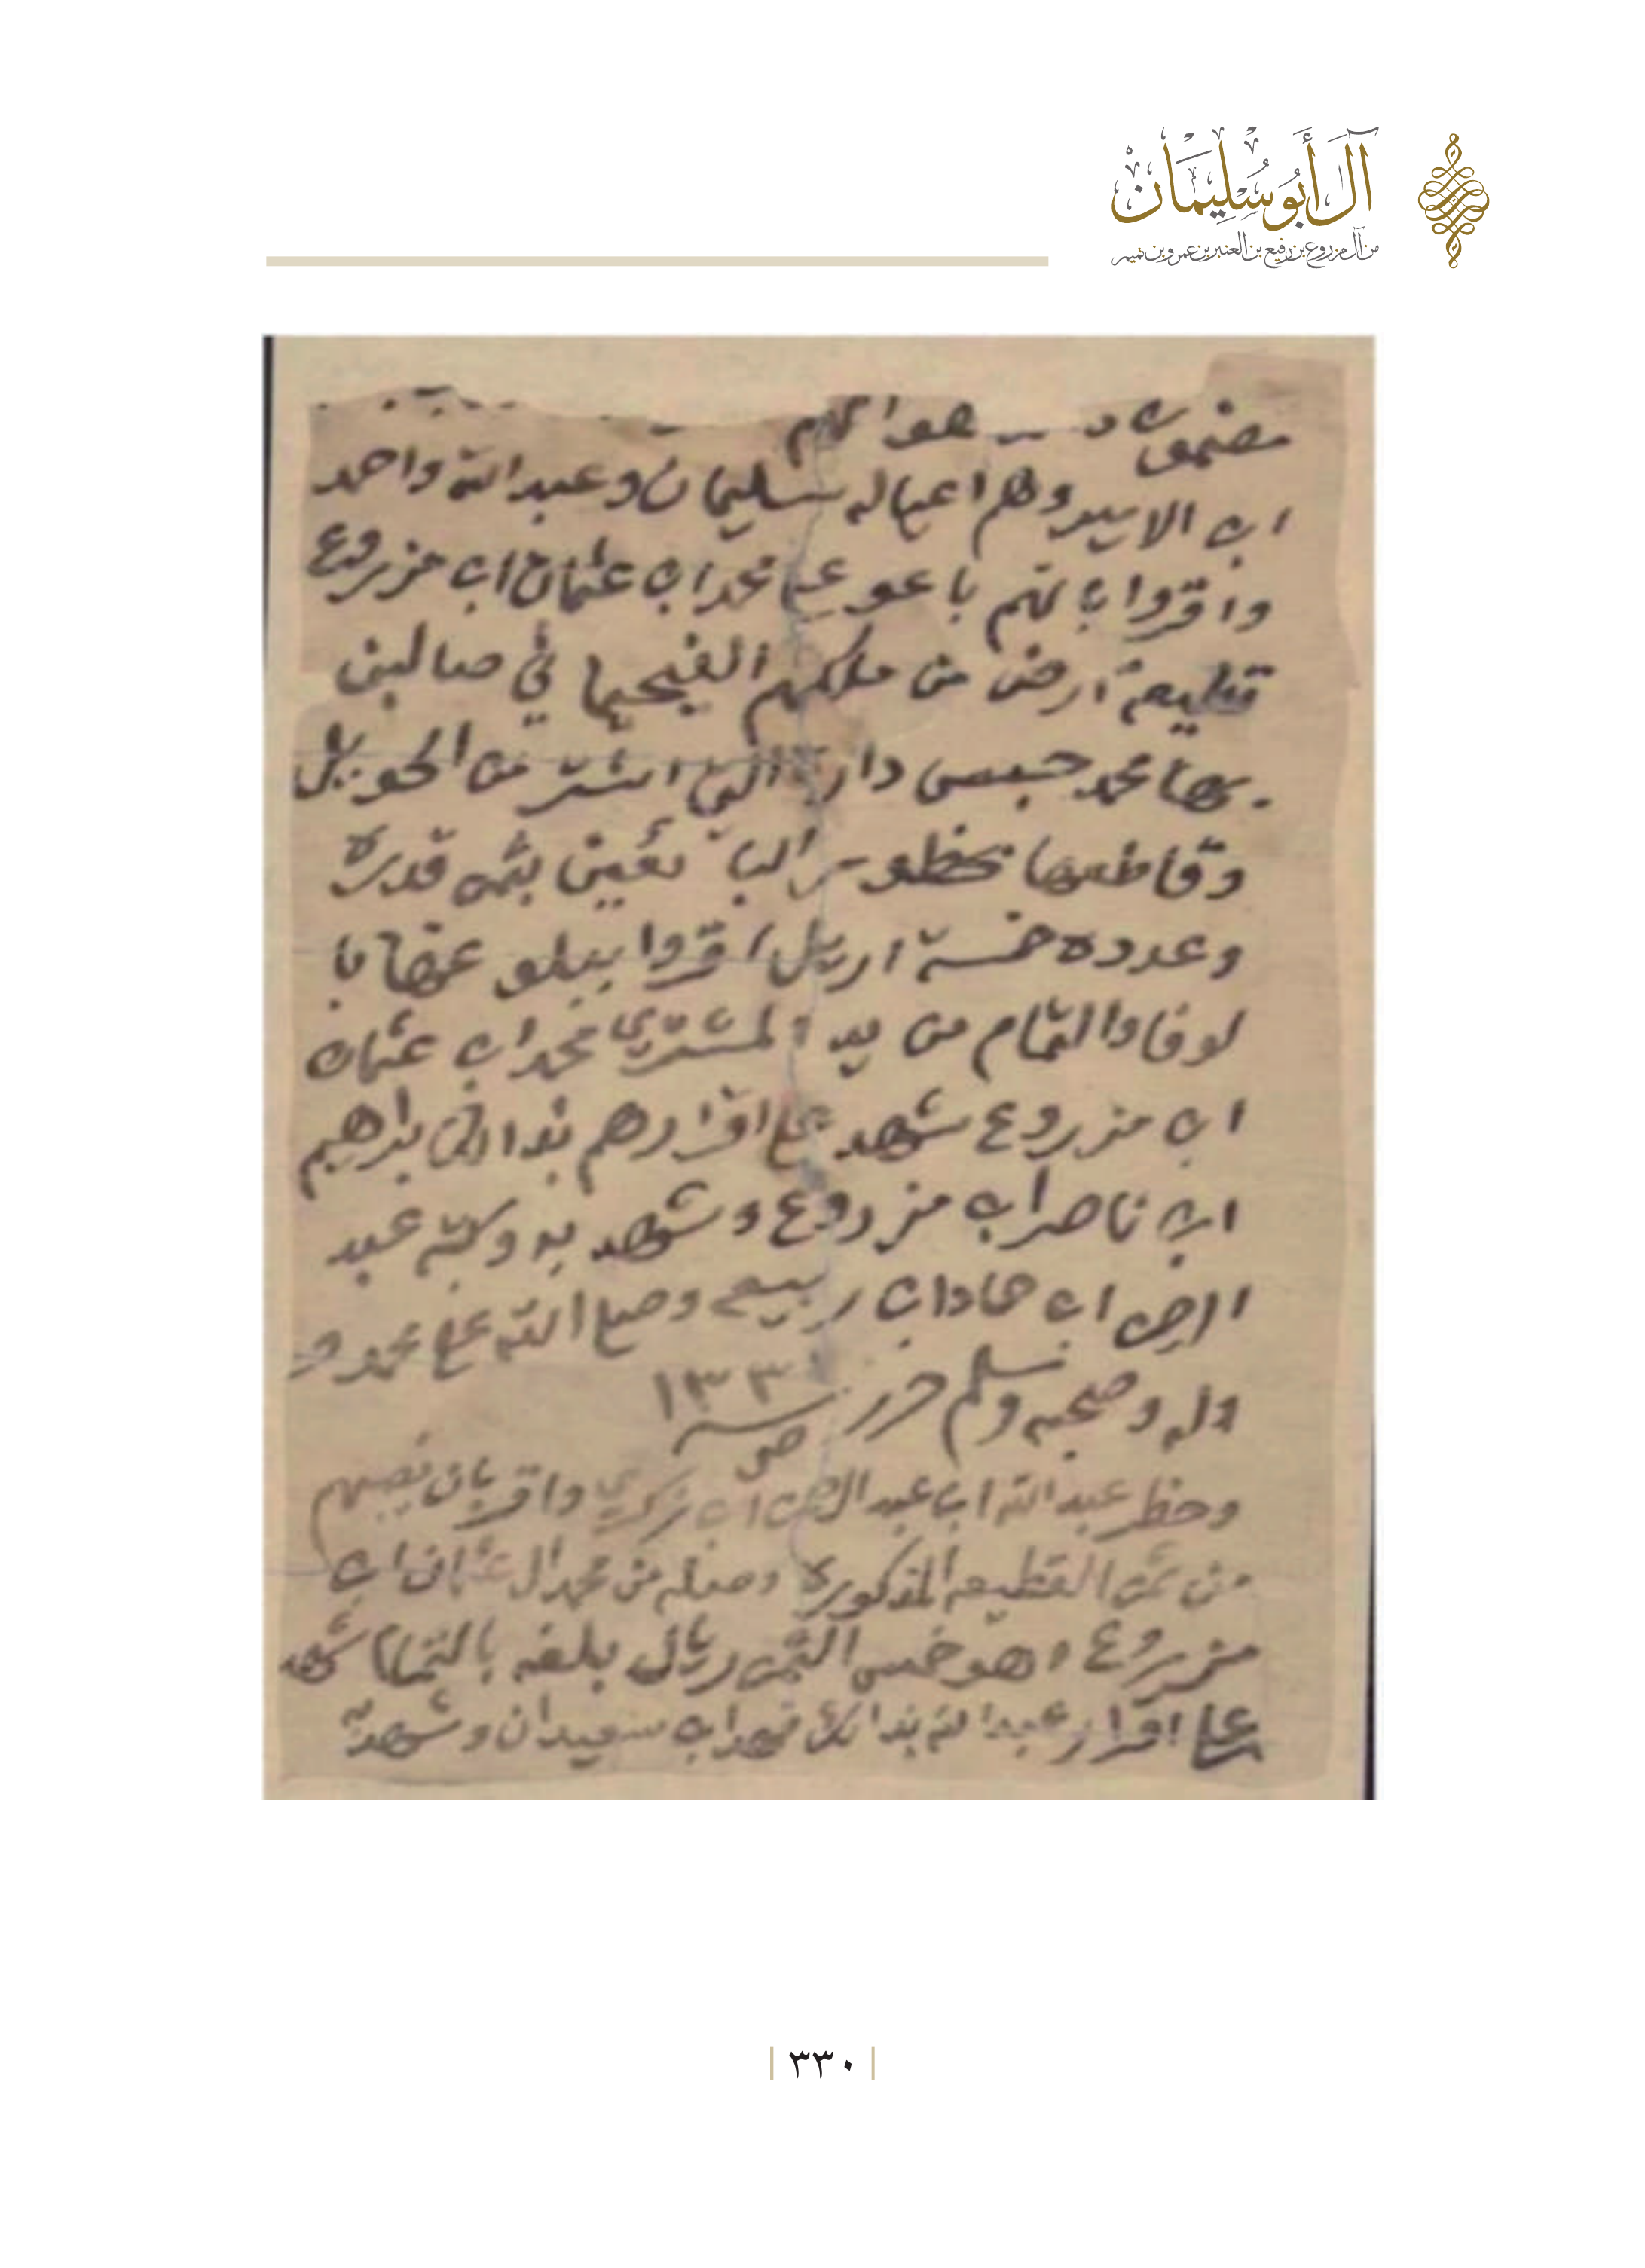 آل أبو سليمان
من آل مزروع بن رفيع بن العنبر بن عمرو بن تميم
مضمونه
اب الاسيد وهم اعياله سليمان وعبدالله واحمد
واقروا بانهم باعو على محمد اب عثمان اب مزروع
قطيعة ارض من ملكهم الفيحيا في صالبن
بها محمد حبسى دارة التي اشتر من الحويل
وقاطعها بحظور البا يعين بثمن قدره
وعدده خمسة اريل اقروا ببلو عها با
لوفا والتمام من يد المشتري محمد اب عثمان
اب مزروع شهد على اقرارهم بذالك براهيم
اب ناصر اب مزروع وشهد به وكتبه عبد
الرحمن اب حماد اب ربيعه وصلى الله على محمد و
اله وصحبه وسلم حرر
سنة ١٣٣١
وحظر عبدالله اب عبدالرحمن اب زكري واقر بان نصيبهم
من ثمن القطيعه المذكوره وصله من محمد ال عثمان اب
مزروع وهو خمس الثمن ريال بلغه بالتمام شهد
على اقرار عبدالله بذالك فهد اب سعيدان وشهد به
٣٣٠